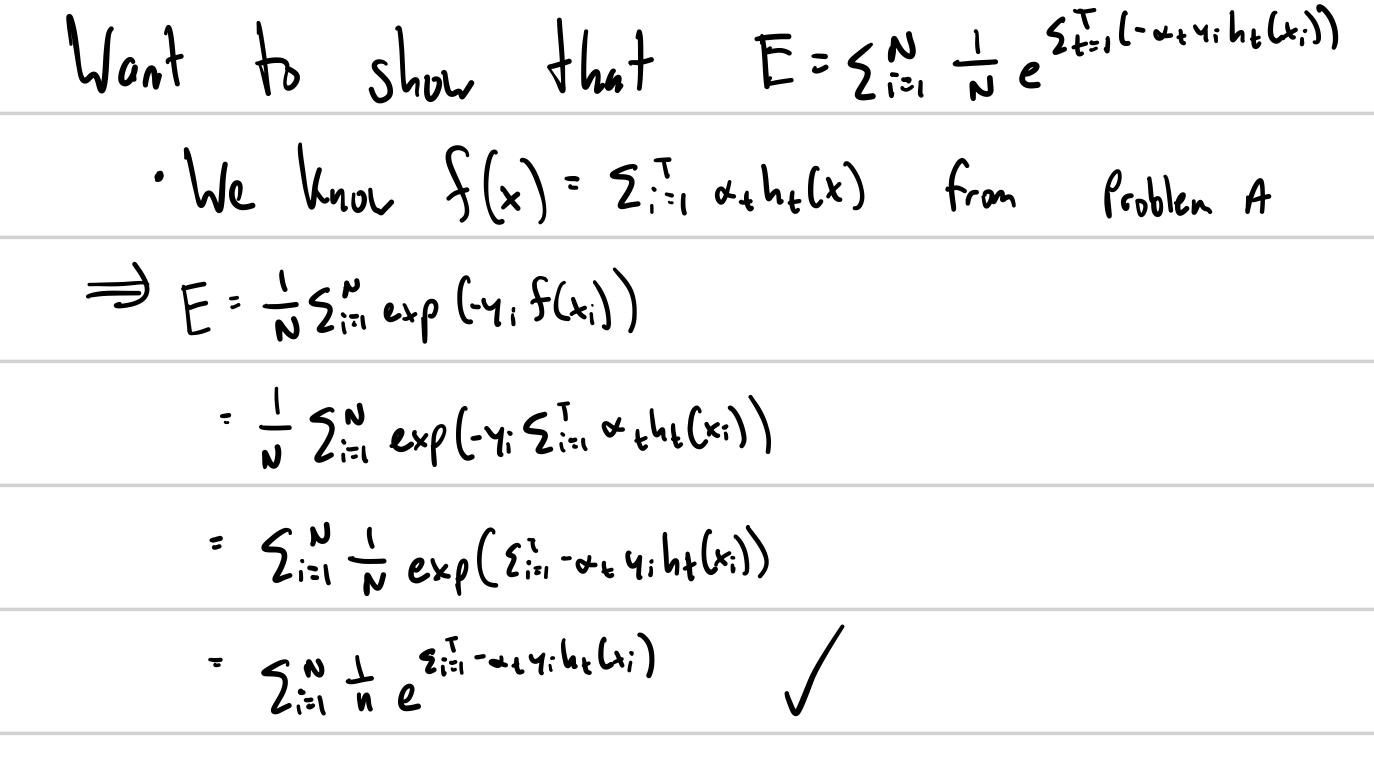 Want to show that E = Σ_{i=1}^{N} 1/N e^{Σ_{t=1}^{T}(-α_t y_i h_t(x_i))}
· We know f(x) = Σ_{i=1}^{T} α_t h_t(x) from Problem A
⇒ E = 1/N Σ_{i=1}^{N} exp(-y_i f(x_i))
= 1/N Σ_{i=1}^{N} exp(-y_i Σ_{i=1}^{T} α_t h_t(x_i))
= Σ_{i=1}^{N} 1/N exp(Σ_{i=1}^{T} -α_t y_i h_t(x_i))
= Σ_{i=1}^{N} 1/n e^{Σ_{i=1}^{T} -α_t y_i h_t(x_i)} ✓